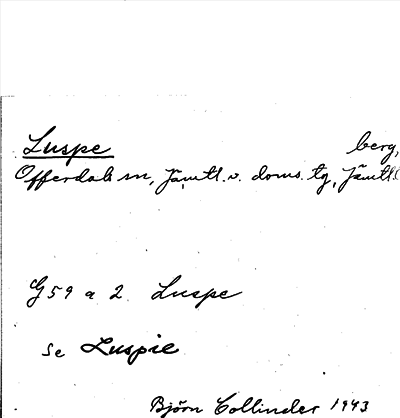 Luspe berg,
Offerdals sn, Jämtl. v. doms. tg, Jämtl.
G 59 a 2 Luspe
se Luspie
Björn Collinder 1943